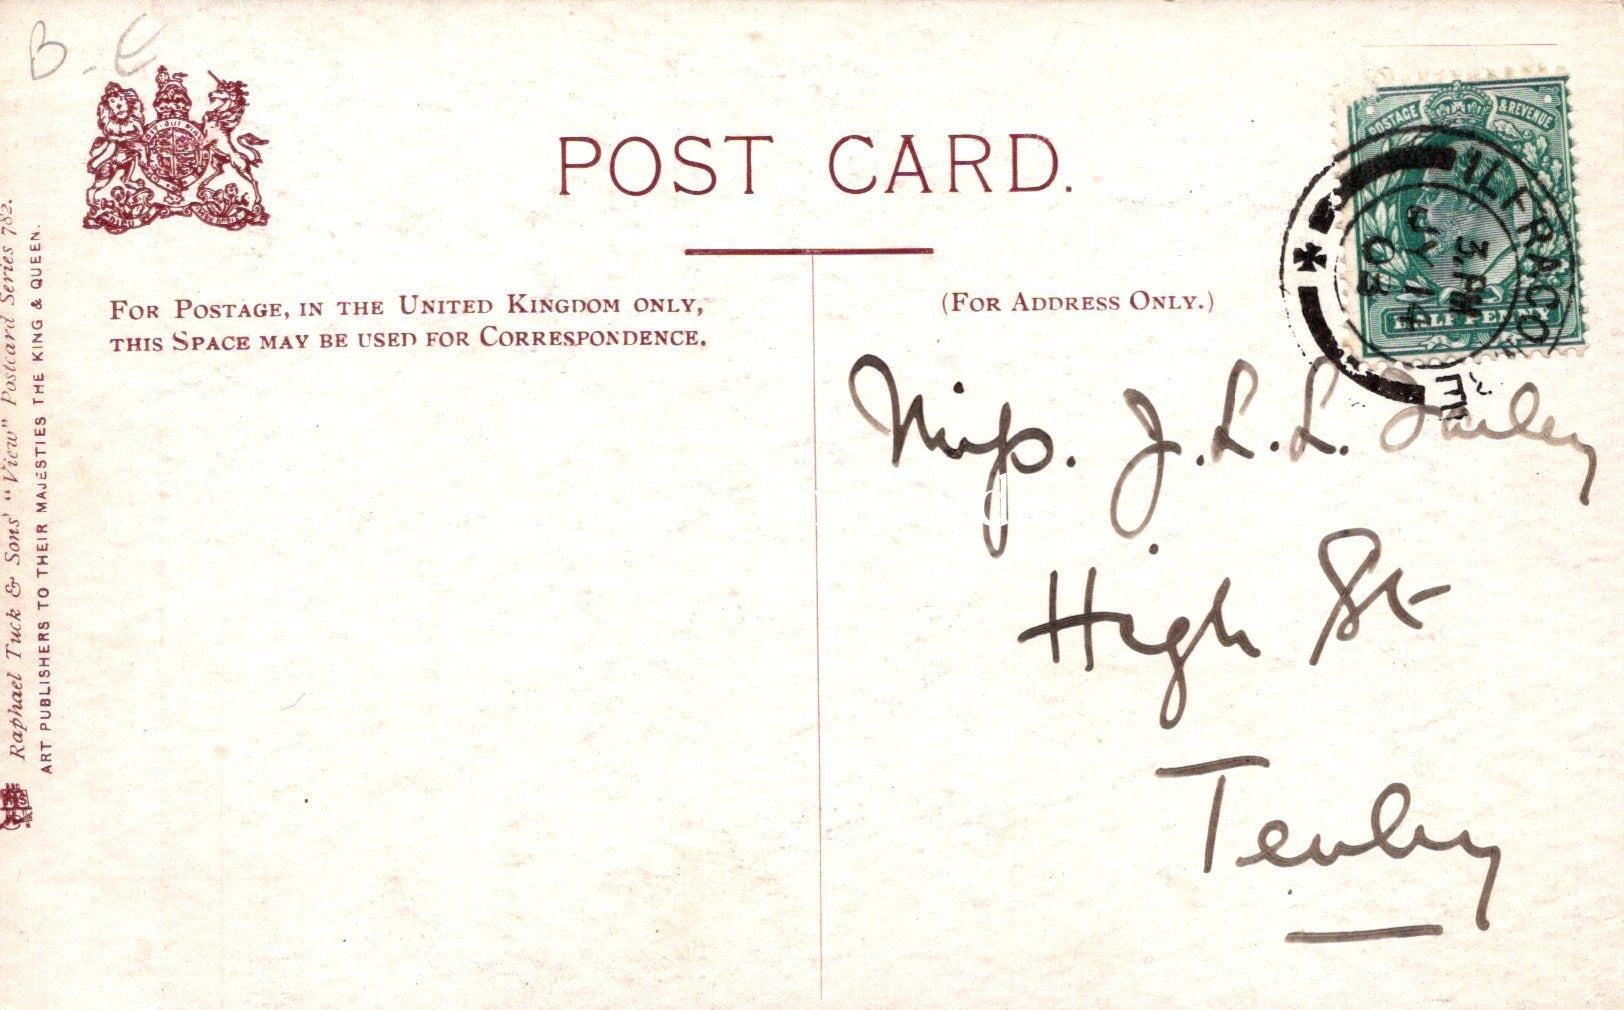 B. E
POST CARD.
FOR POSTAGE, IN THE UNITED KINGDOM ONLY,
THIS SPACE MAY BE USED FOR CORRESPONDENCE.
(FOR ADDRESS ONLY.)
Raphael Tuck & Sons' "View" Postcard Series 782.
ART PUBLISHERS TO THEIR MAJESTIES THE KING & QUEEN.
POSTAGE & REVENUE
HALF PENNY
ILFRACOMBE
3.PM
JY 14
03
Miss. J. L. L.
High St
Tenby